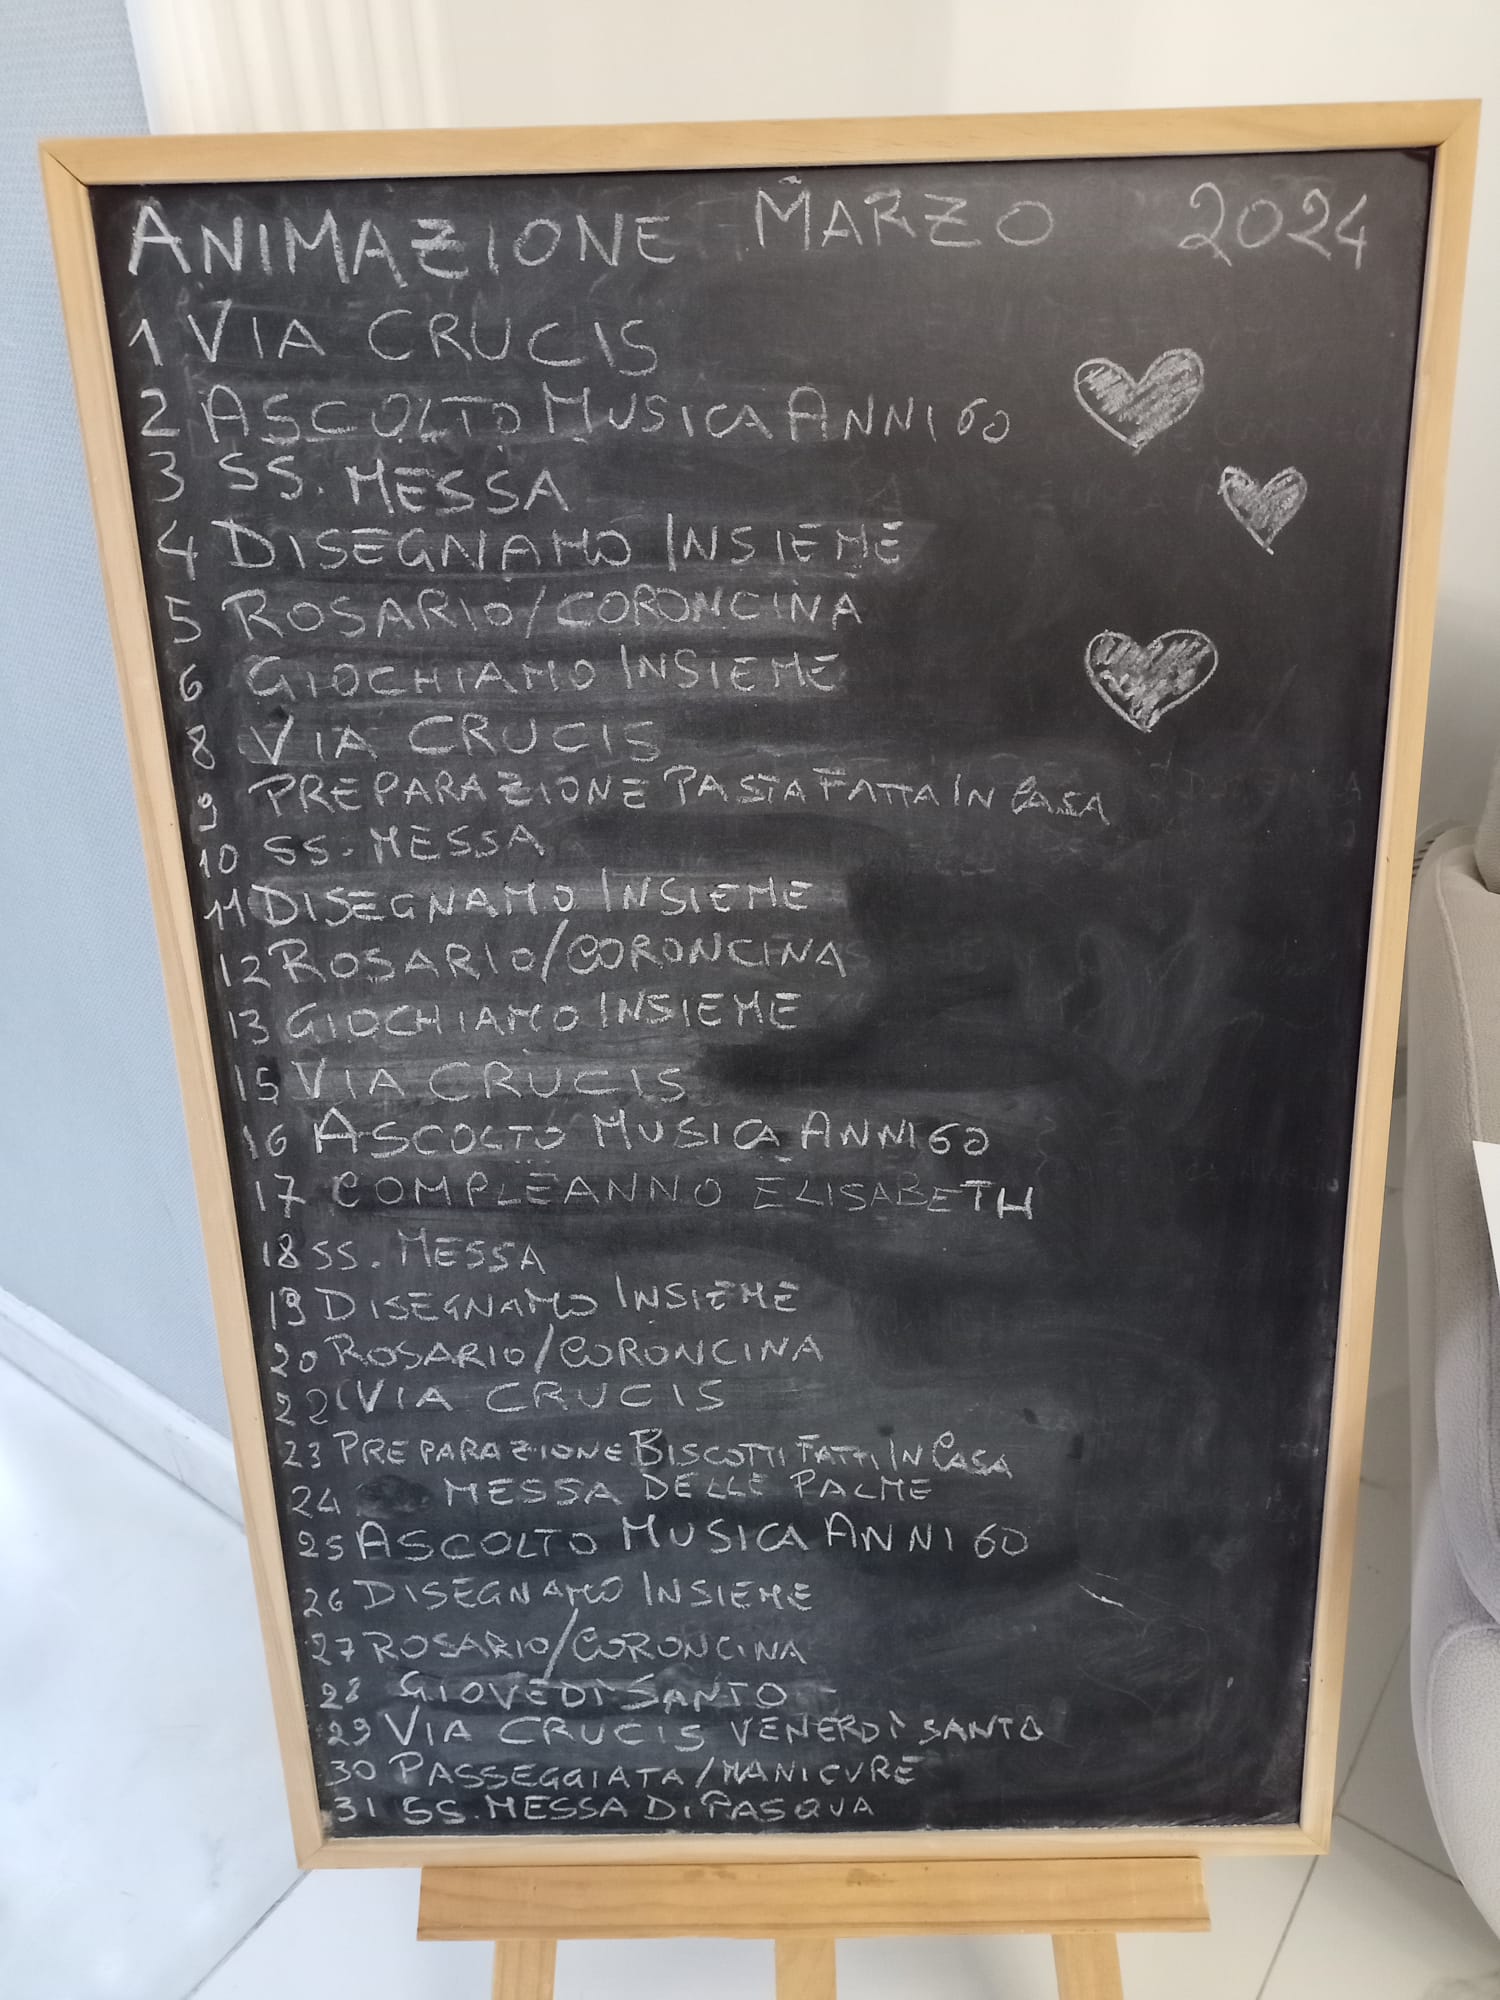 ANIMAZIONE MARZO 2024
1 VIA CRUCIS
2 ASCOLTO MUSICA ANNI 60
3 SS. MESSA
4 DISEGNAMO INSIEME
5 ROSARIO/CORONCINA
6 GIOCHIAMO INSIEME
8 VIA CRUCIS
9 PREPARAZIONE PASTA FATTA IN CASA
10 SS. MESSA
11 DISEGNAMO INSIEME
12 ROSARIO/CORONCINA
13 GIOCHIAMO INSIEME
15 VIA CRUCIS
16 ASCOLTO MUSICA ANNI 60
17 COMPLEANNO ELISABETH
18 SS. MESSA
19 DISEGNAMO INSIEME
20 ROSARIO/CORONCINA
22 VIA CRUCIS
23 PREPARAZIONE BISCOTTI FATTI IN CASA
24 MESSA DELLE PALME
25 ASCOLTO MUSICA ANNI 60
26 DISEGNAMO INSIEME
27 ROSARIO/CORONCINA
28 GIOVEDI SANTO
29 VIA CRUCIS VENERDÌ SANTO
30 PASSEGGIATA/MANICURE
31 SS. MESSA DI PASQUA